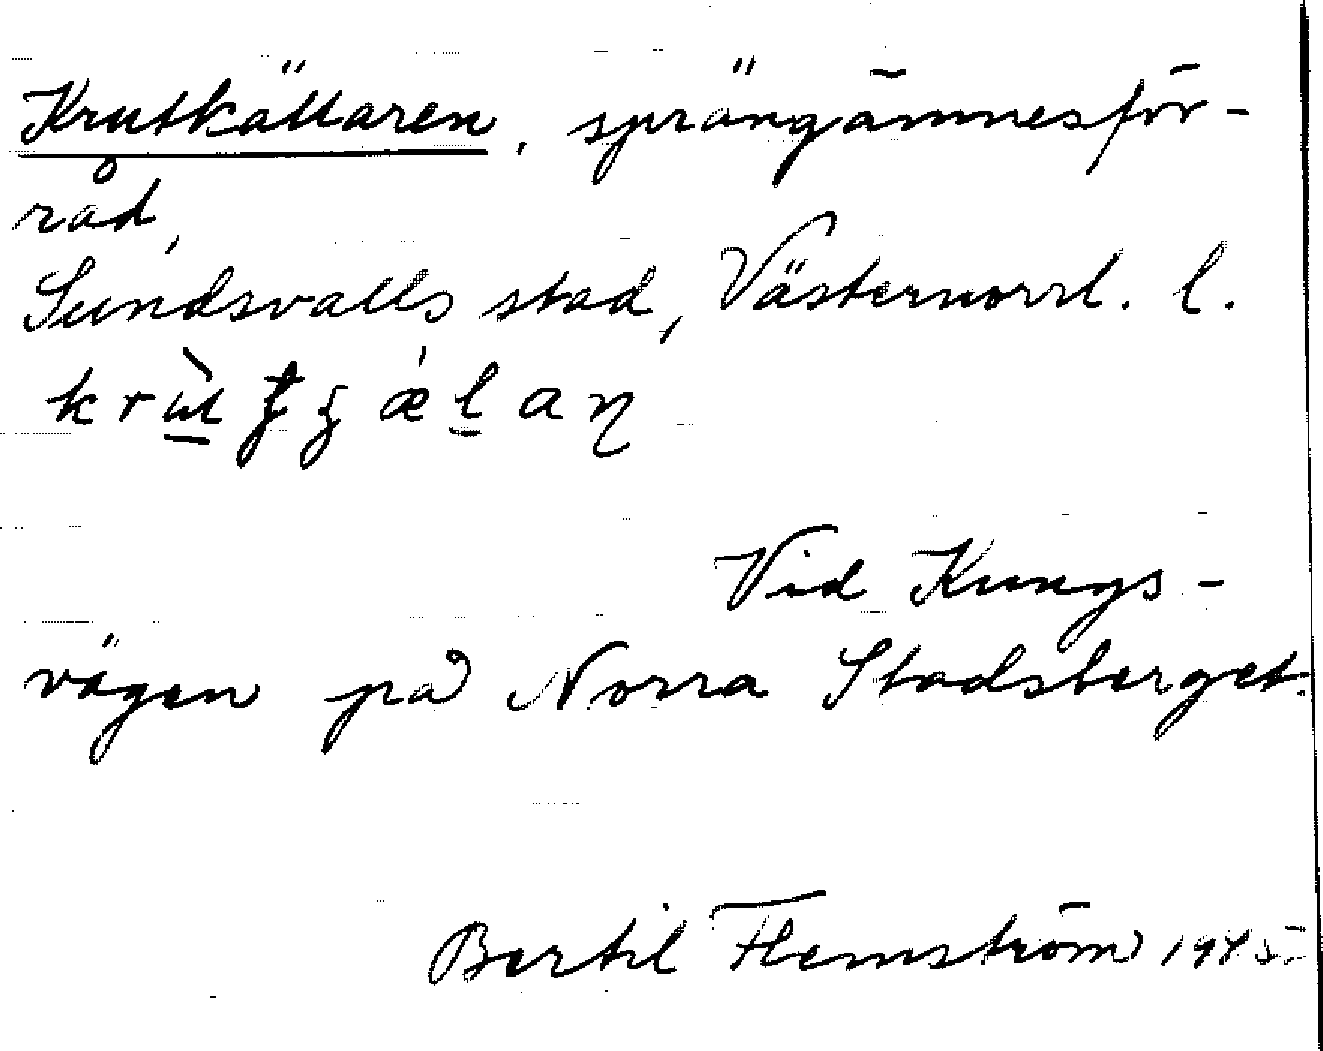 Krutkällaren, sprängämnesför-
råd,
Sundsvalls stad, Västernorrl. l.
Vid Kungs-
vägen på Norra Stadsberget.
Bertil Flemström 1975